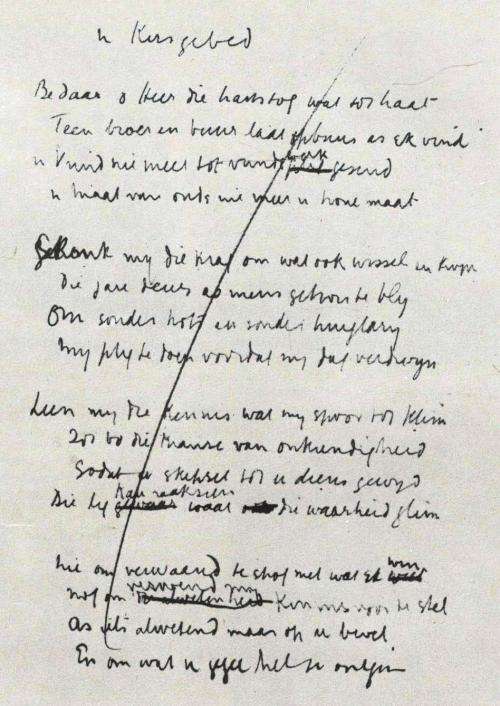 'n Kersgebed
Bedaar o Heer die hartstog wat tot haat
Teen broer en buur laat opbruis as ek vind
'n Vriend nie meer tot vriendwerk gesind
'n maat van ouds nie meer 'n
Skenk my die krag om wat ook wissel en kwyn
Die jare deur as mens getrou te bly
Om sonder hoop en sonder huiglary
My plig te doen voordat my dag verdwyn
Leen my die kennis wat my spoor tot klim
Tot bo die transe van onkundigheid
Sodat 'n skepsel tot u diens gewyd
Die lig kan raaksien waar die waarheid glim
Nie om verwaand te stof met wat ek win
Nog om kennis voor te stel
As iets alwetend maar op u bevel
En om wat u gegee het te ontgin